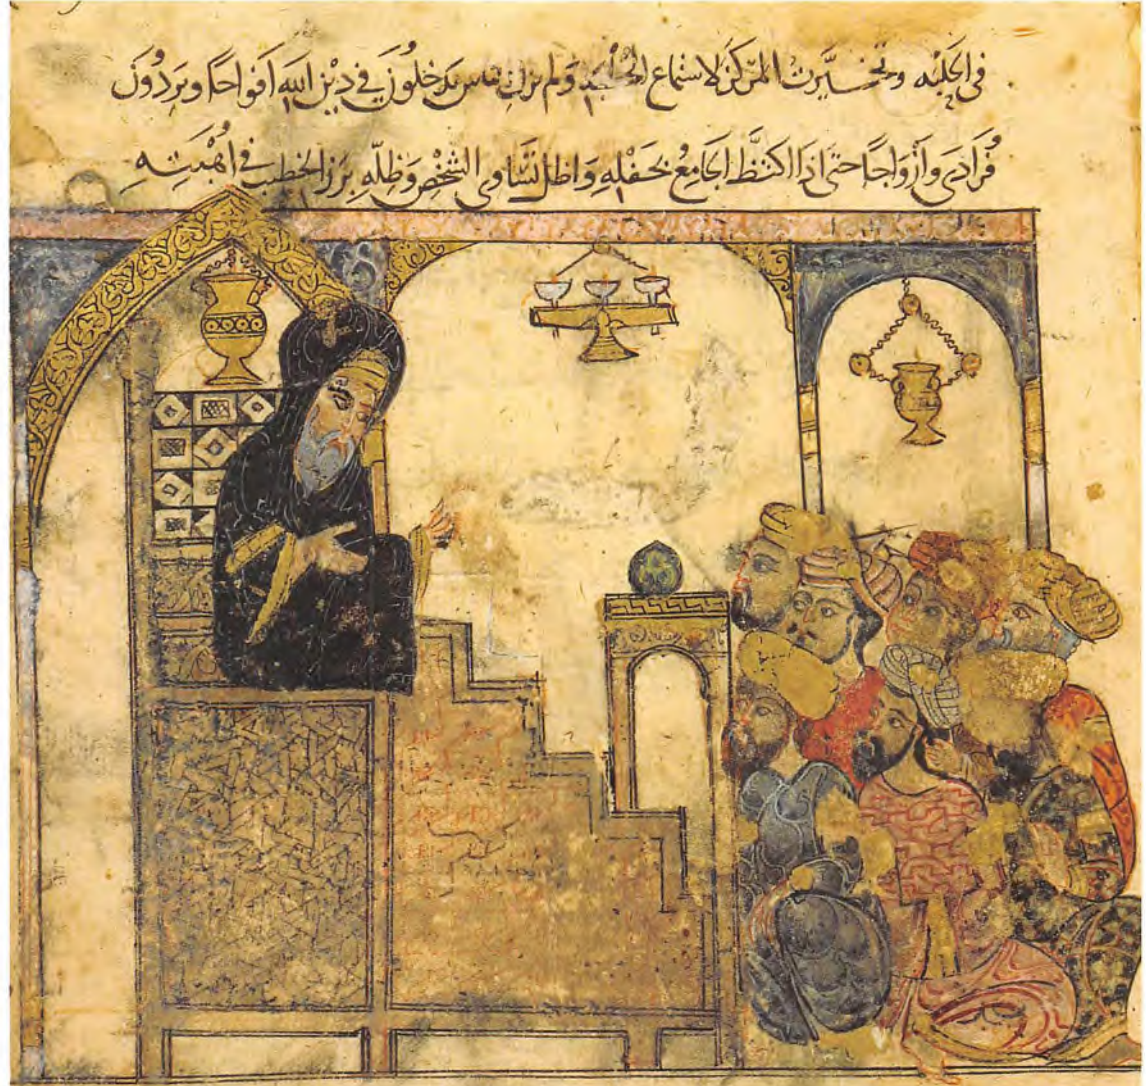 في الحلبه وتخيَّرت المركز لاستماع الخطبه ولم يزل الناس يدخلون في دين الله افواجا ويردون
فُرادى وأزواجًا حتى اذا اكتظَّ الجامعُ بحفلِهِ واظلّ تساوى الشخص وظلّهِ برز الخطيب في اُهْبَتِهِ